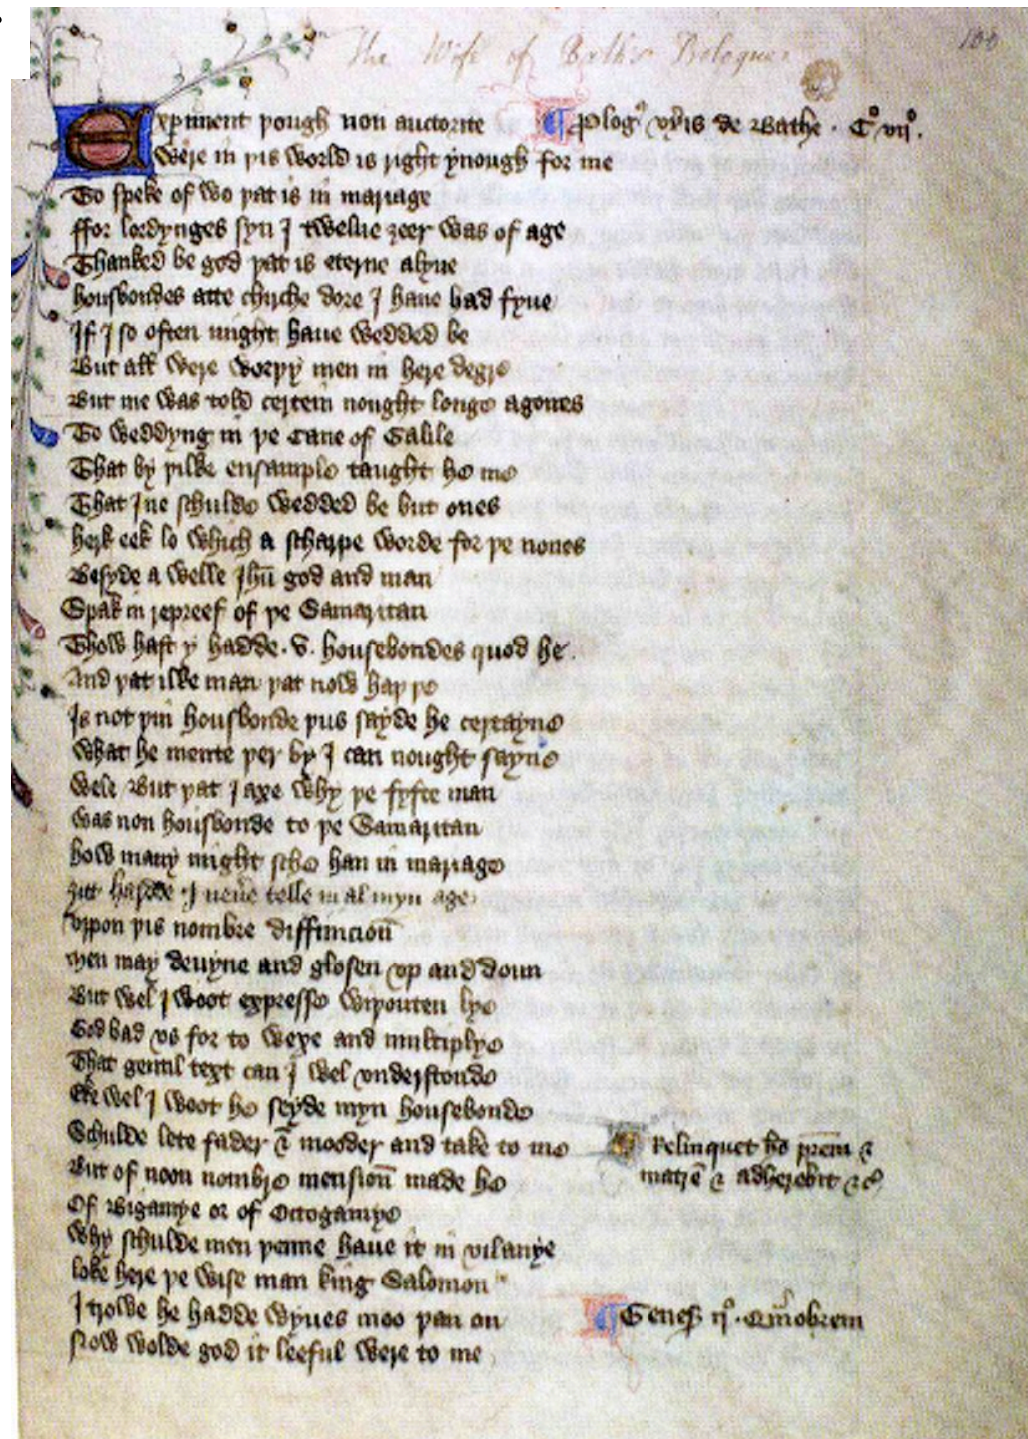 The Wife of Bath's Prologue
100
Exꝑiment þough non auctorite
¶ Plogꝰ vxis de Bathe . Co vijo.
were in þis world is right ynough for me
To speke of wo þat is in mariage
ffor lordynges syn I twelue ȝeer was of age
Thanked be god þat is eterne alyue
housbondes atte chirche dore I haue had fyue
If I so often might haue wedded be
But all were worþy men in here degre
But me was told certein nought longe agones
To weddyng in þe Cane of Galile
That by þilke ensample taught he me
That I ne schulde wedded be but ones
herk eek lo which a scharpe worde for þe nones
Besyde a welle Jhū god and man
Spak in repreef of þe Samaritan
Thow hast y hadde . v . housebondes quod he .
And þat ilke man þat now haþ þe
Is not þin housbonde þus sayde he certayne
What he mente þer by I can nought sayne
wele But þat I axe why þe fyfte man
was non housbonde to þe Samaritan
how many might sche han in mariage
ȝitt herde I neue telle in al myn age
vppon þis nombre diffincioū
Men may deuyne and glosen vp and doun
But wel I woot expresse wiþouten lye
God bad vs for to wexe and multiplye
That gentil text can I wel vnderstonde
Eke wel I woot he seyde myn housebonde
Schulde lete fader & mooder and take to me
Relinquet ho prem &
But of noon nombre mensioū made he
matrē & adherebit &c
Of Bigamye or of Octogamye
Why schulde men þenne haue it in vilanye
loke here þe wise man king Salomon
I trowe he hadde wyues moo þan on
¶ Genes ijo . Qmobrem
Now wolde god it leeful were to me